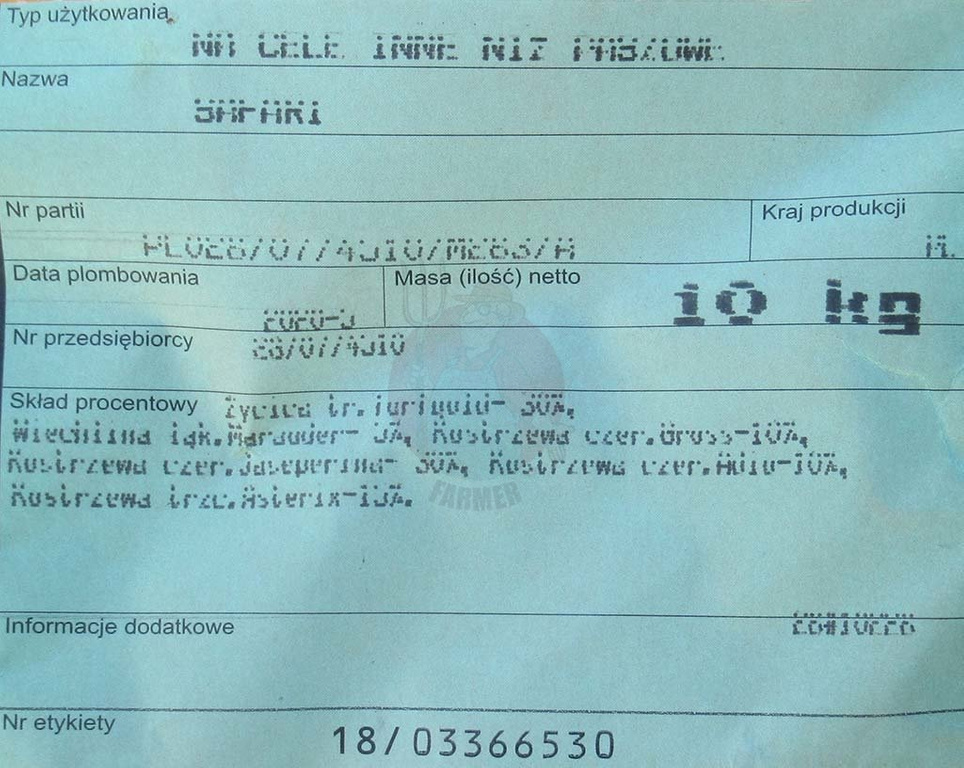 Typ użytkowania
NA CELE INNE NIŻ PASZOWE
Nazwa
SAFARI
Nr partii
Kraj produkcji
Data plombowania
Masa (ilość) netto
10 kg
2020-3
Nr przedsiębiorcy
Skład procentowy
Życica tr. 30%,
Wiechlina łąk.Marauder- 5%, Kostrzewa czer.Gross-10%,
Kostrzewa czer.Jasperina- 30%, Kostrzewa czer.
Kostrzewa trzc.Asterix-15%.
FARMER
Informacje dodatkowe
Nr etykiety
18/03366530